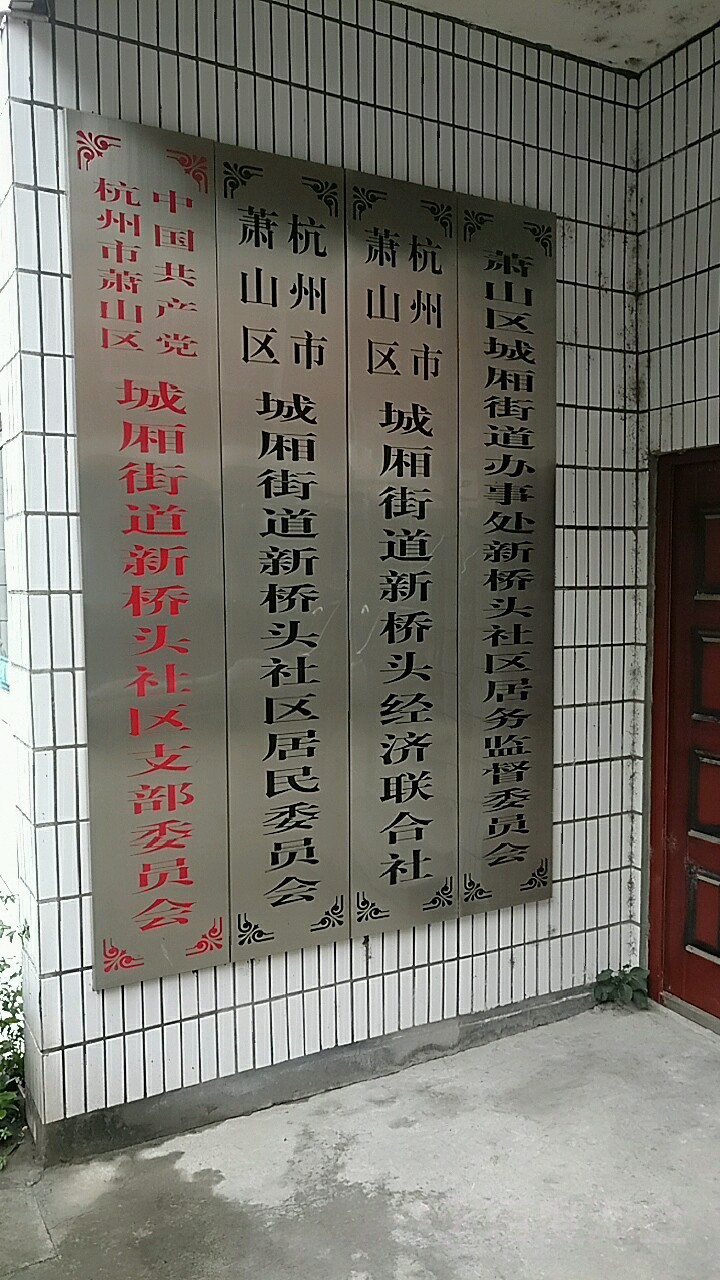 中国共产党
杭州市萧山区
城厢街道新桥头社区支部委员会
杭州市
萧山区
城厢街道新桥头社区居民委员会
杭州市
萧山区
城厢街道新桥头经济联合社
萧山区城厢街道办事处新桥头社区居务监督委员会